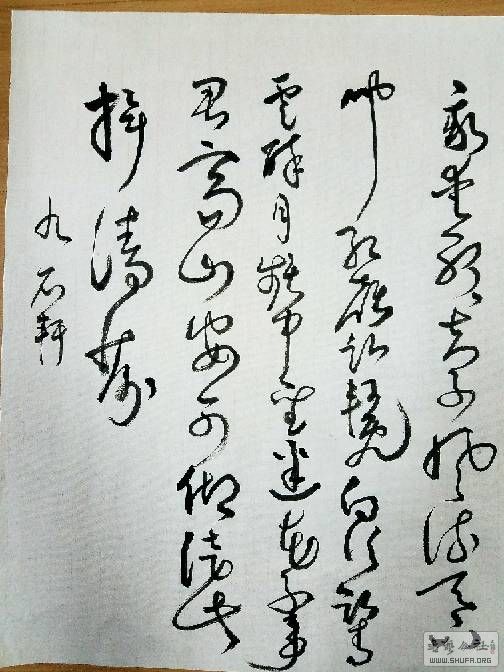 吾爱孟夫子风流天下
闻红颜弃轩冕白首卧松
云醉月频中圣迷花不事
君高山安可仰徒此
揖清芬
九石轩
WWW.SHUFA.ORG